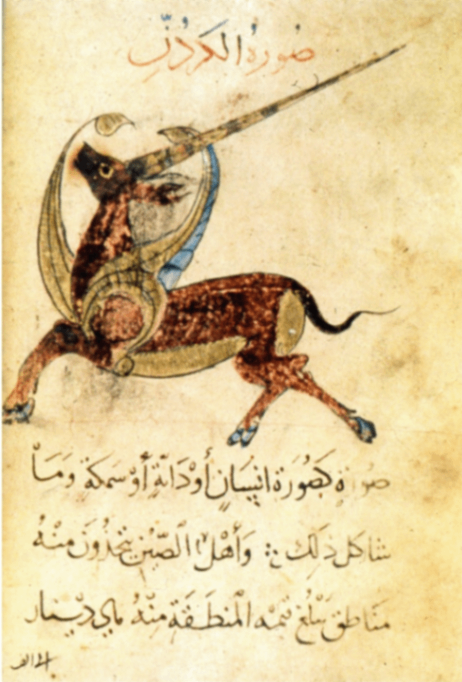 صورة الكركدن
صورة كصورة انسان أو دابة أو سمكة وما
شاكل ذلك وأهل الصين يتخذون منه
مناطق يبلغ قيمة المنطقة منه مائ دينار